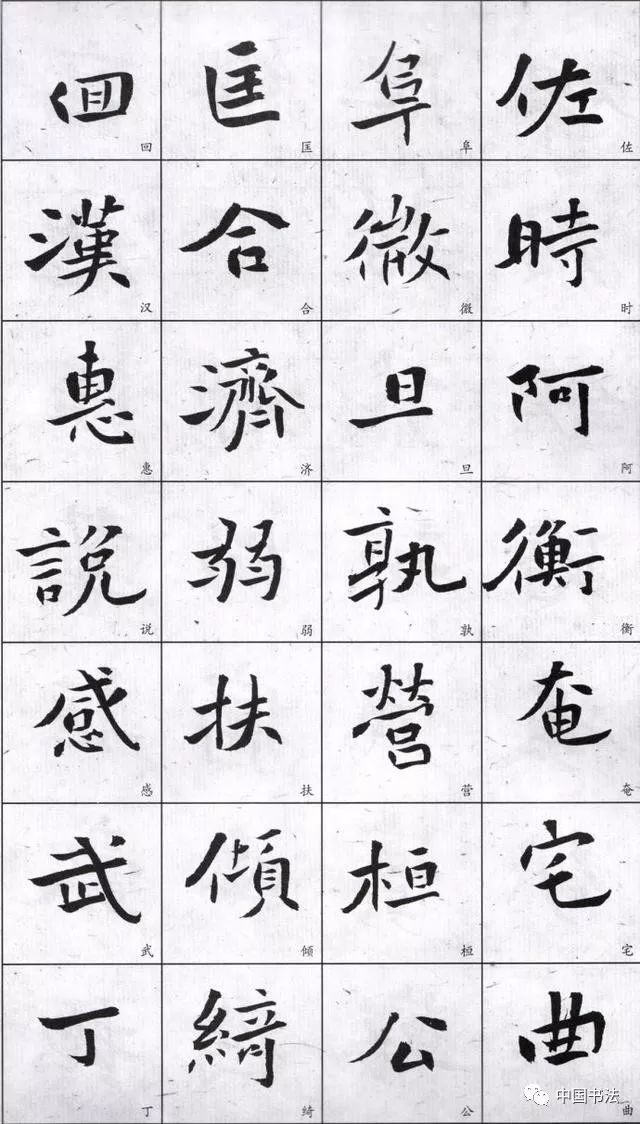 佐時阿衡奄宅曲
佐时阿衡奄宅曲
阜微旦孰營桓公
阜微旦孰营桓公
匡合濟弱扶傾綺
匡合济弱扶倾绮
佪漢惠說感武丁
回汉惠说感武丁
中国书法